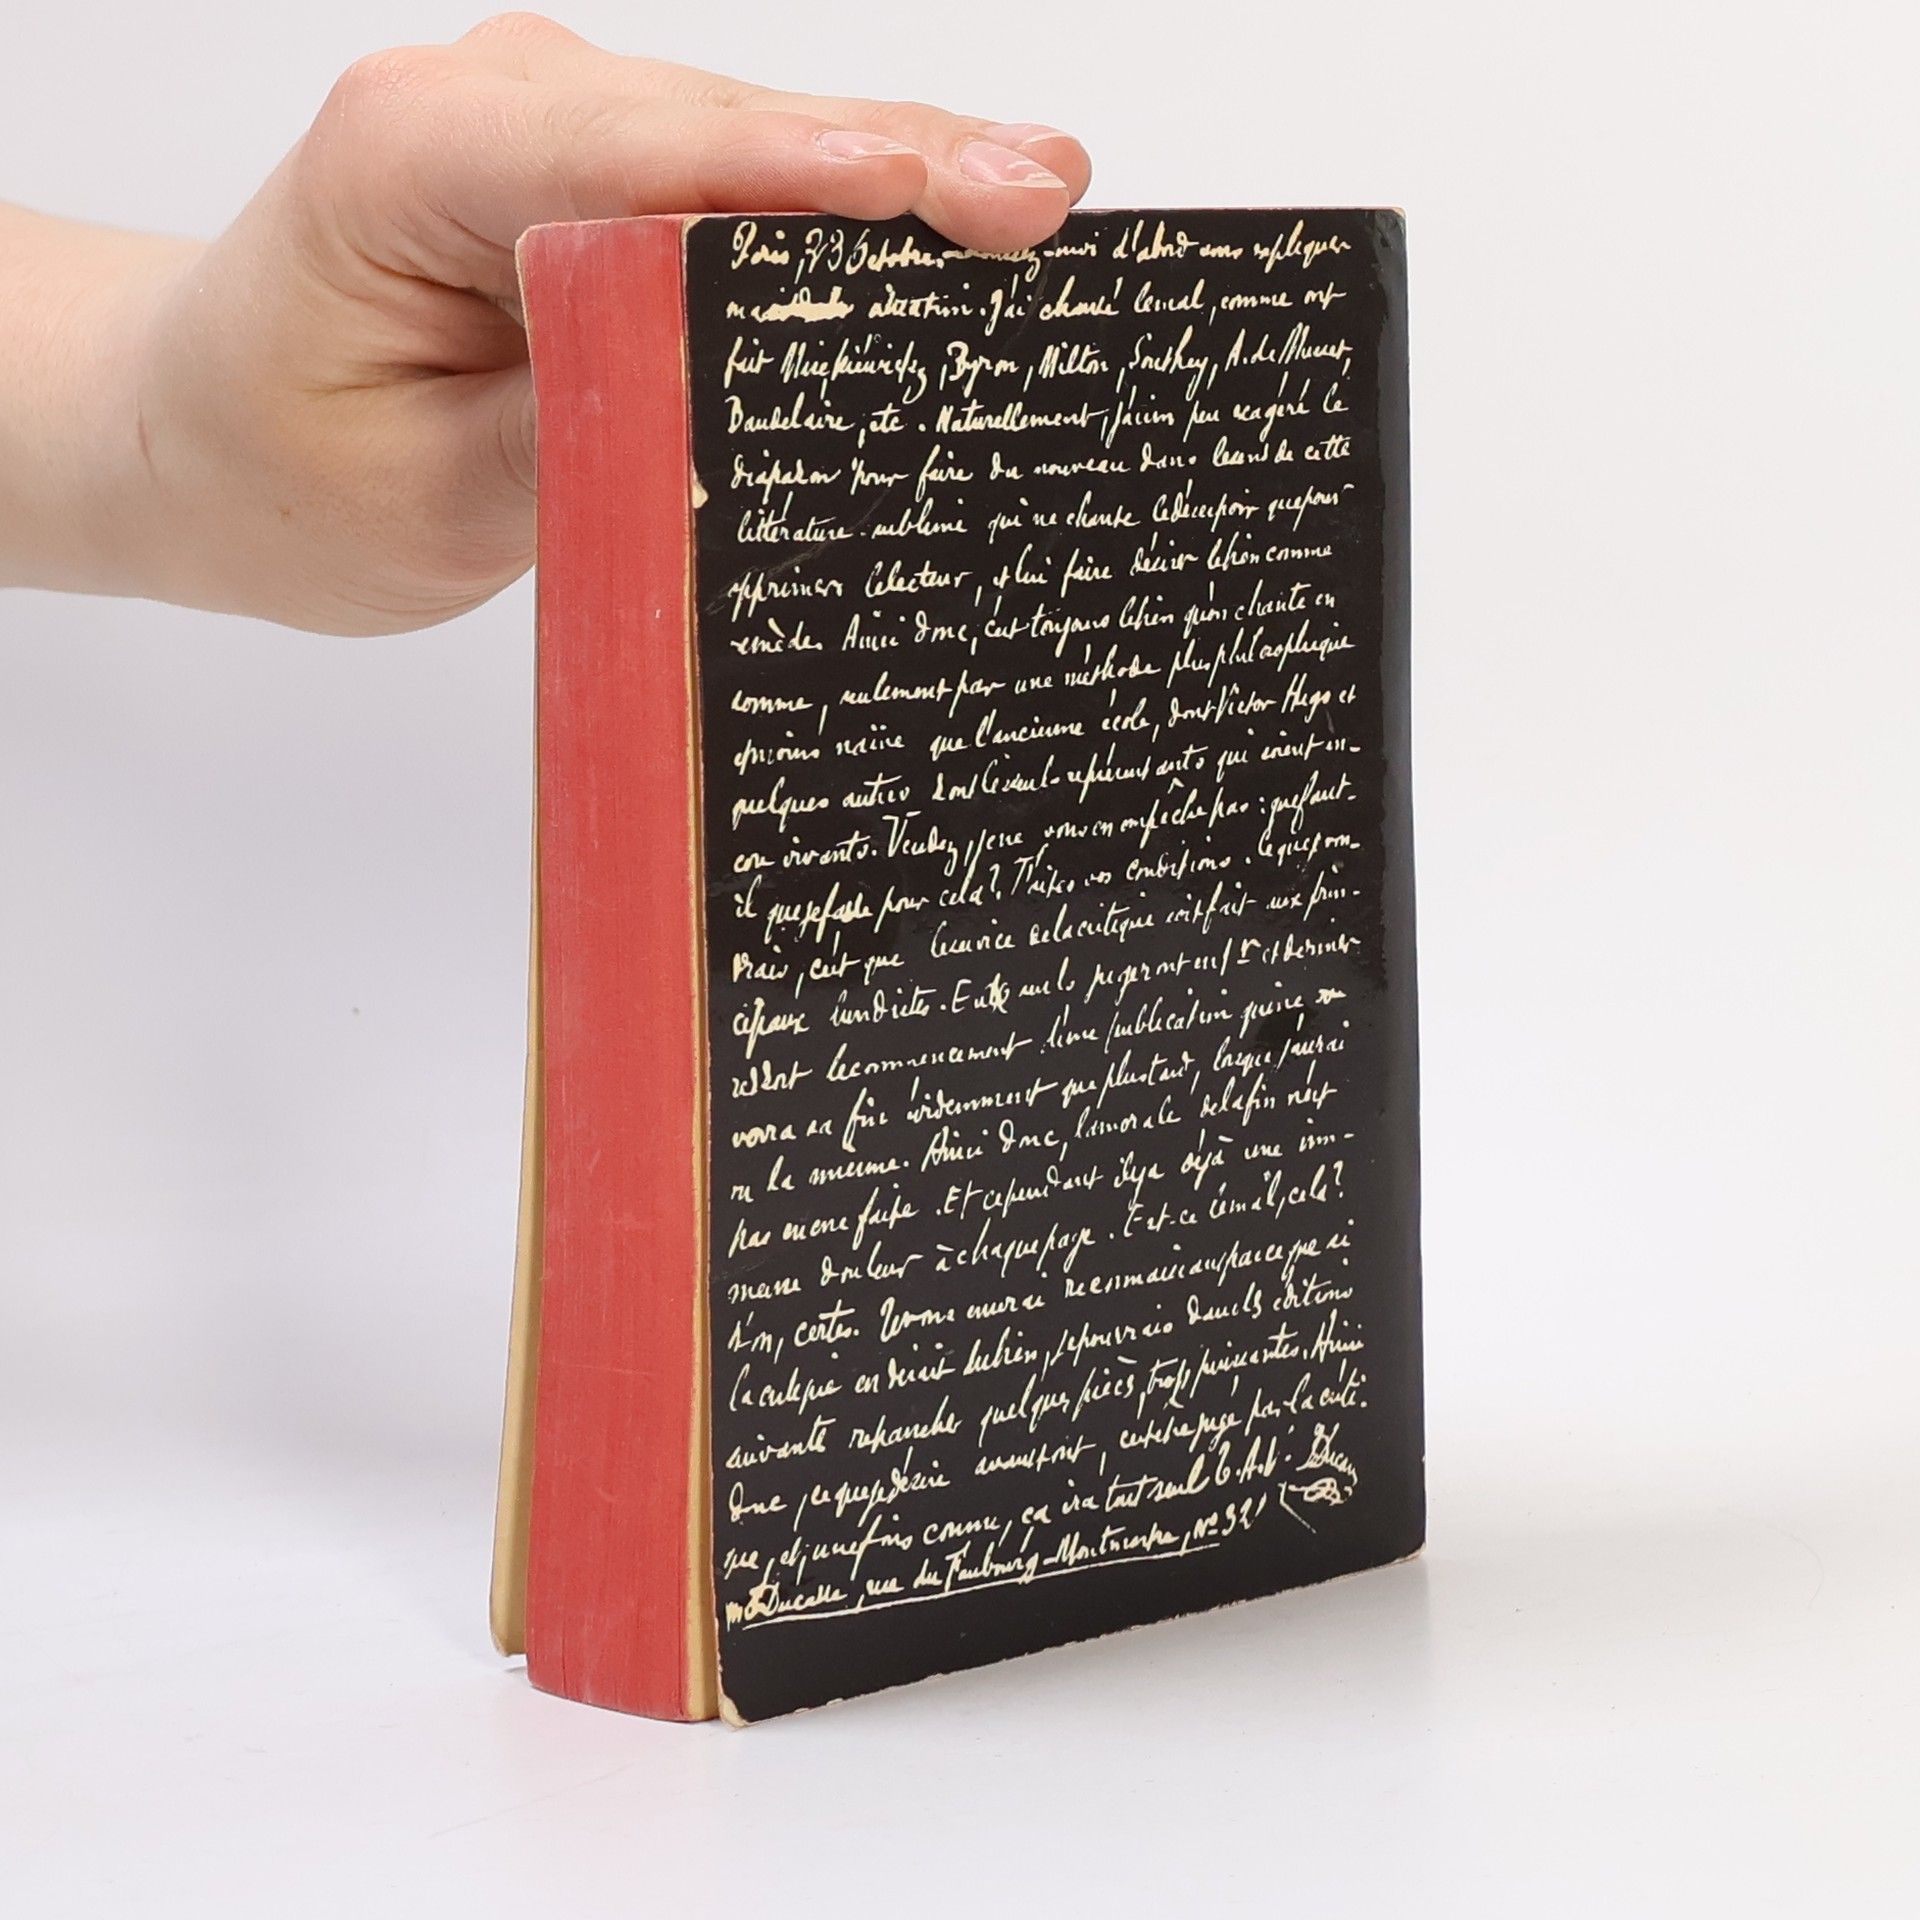 Paris, 23 Octobre. -moi d'abord vous expliquer
ma situation. J'ai chanté le mal, comme ont
fait Mickiéwickz, Byron, Milton, Southey, A. de Musset,
Baudelaire, etc. Naturellement, j'ai un peu exagéré le
diapason pour faire du nouveau dans le sens de cette
littérature sublime qui ne chante le désespoir que pour
opprimer le lecteur, et lui faire désirer le bien comme
remède. Ainsi donc, c'est toujours le bien qu'on chante en
somme, seulement par une méthode plus philosophique
et moins naïve que l'ancienne école, dont Victor Hugo et
quelques autres sont les seuls représentants qui soient en-
core vivants. Vendez, je ne vous en empêche pas : que faut-
il que je fasse pour cela? Faites vos conditions. Ce que je vou-
drais, c'est que le service de la critique soit fait aux prin-
cipaux lundistes. Eux seuls jugeront en 1er et dernier
ressort le commencement d'une publication qui ne
verra sa fin évidemment que plus tard, lorsque j'aurai
vu la mienne. Ainsi donc, la morale de la fin n'est
pas encore faite. Et cependant il y a déjà une im-
mense douleur à chaque page. Est-ce le mal, cela?
Non, certes. Je vous en serai reconnaissant parce que si
la critique en disait du bien, je pourrais dans les éditions
suivantes retrancher quelques pièces, trop puissantes. Ainsi
donc, ce que je désire avant tout, c'est être jugé par la criti-
que, et, une fois connu, ça ira tout seul. T. A. V. I. Ducasse
M. I. Ducasse, rue du Faubourg-Montmartre, No 32